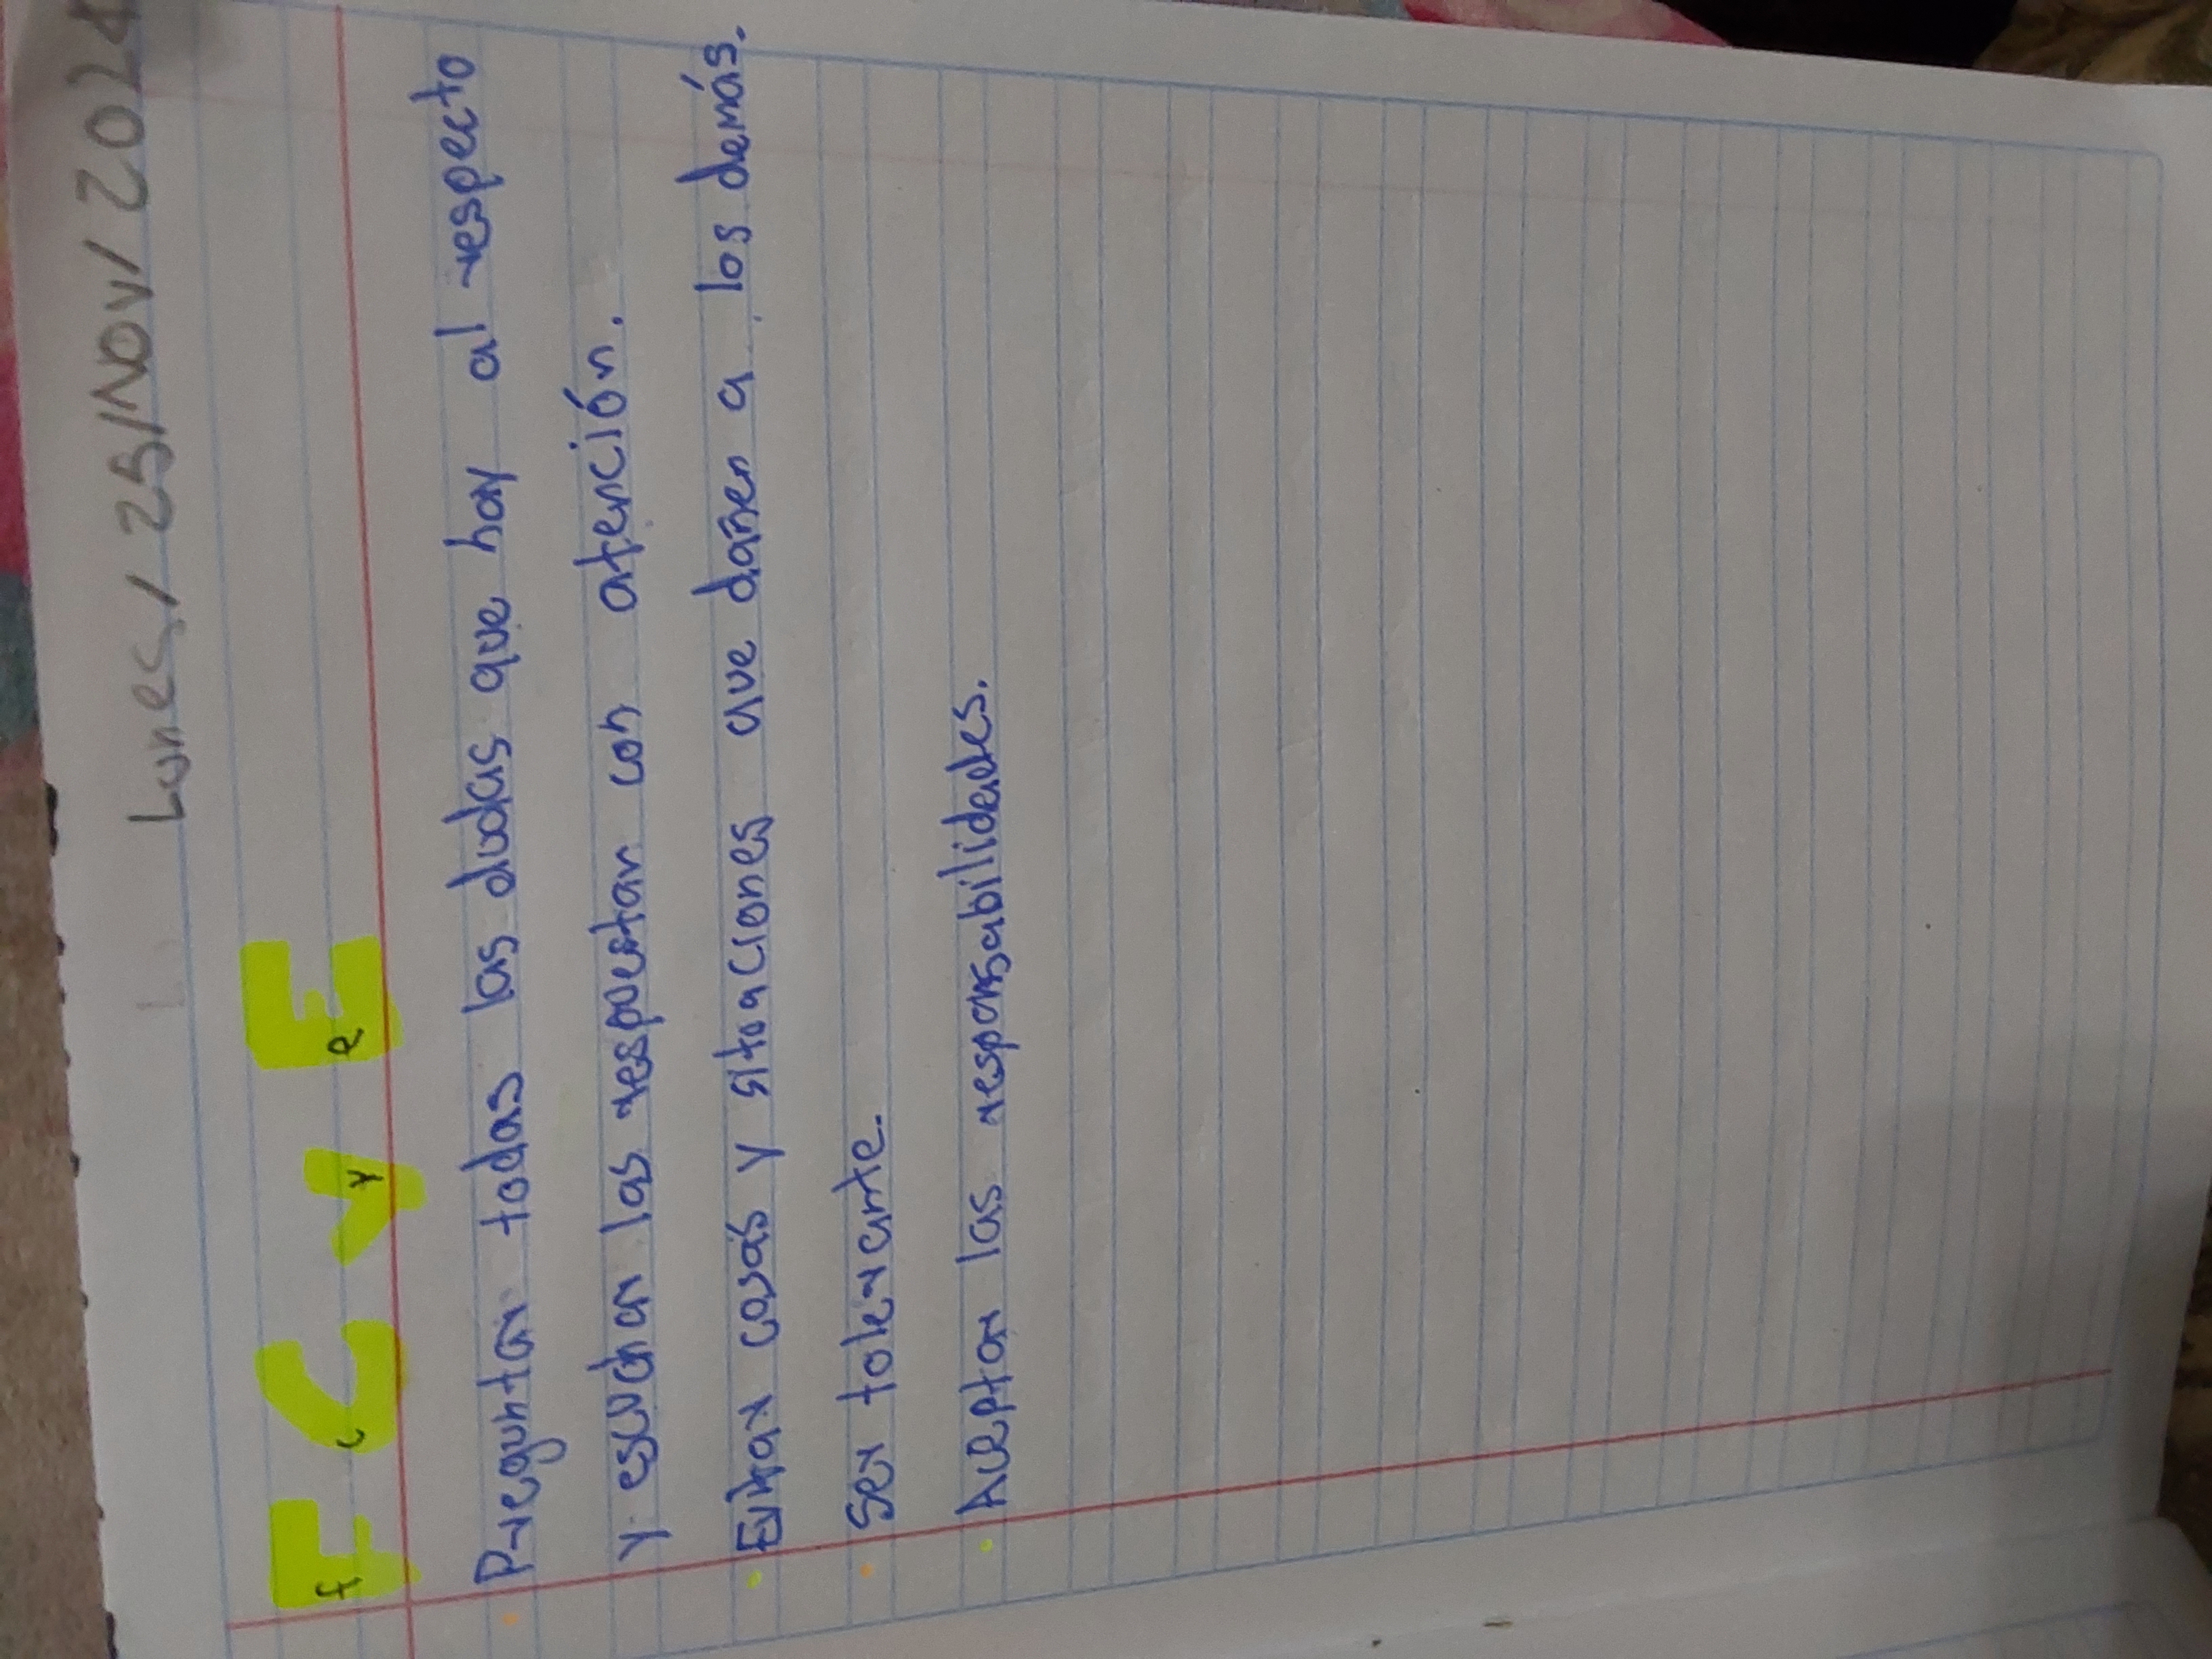 Lunes / 25/Nov/ 2024
F C y E
f c y e
Preguntar todas las dudas que hay al respecto
y escuchar las respuestar con atención.
Evitar cosas y situaciones que dañen a los demás.
Ser tolerante.
Aceptar las responsabilidades.